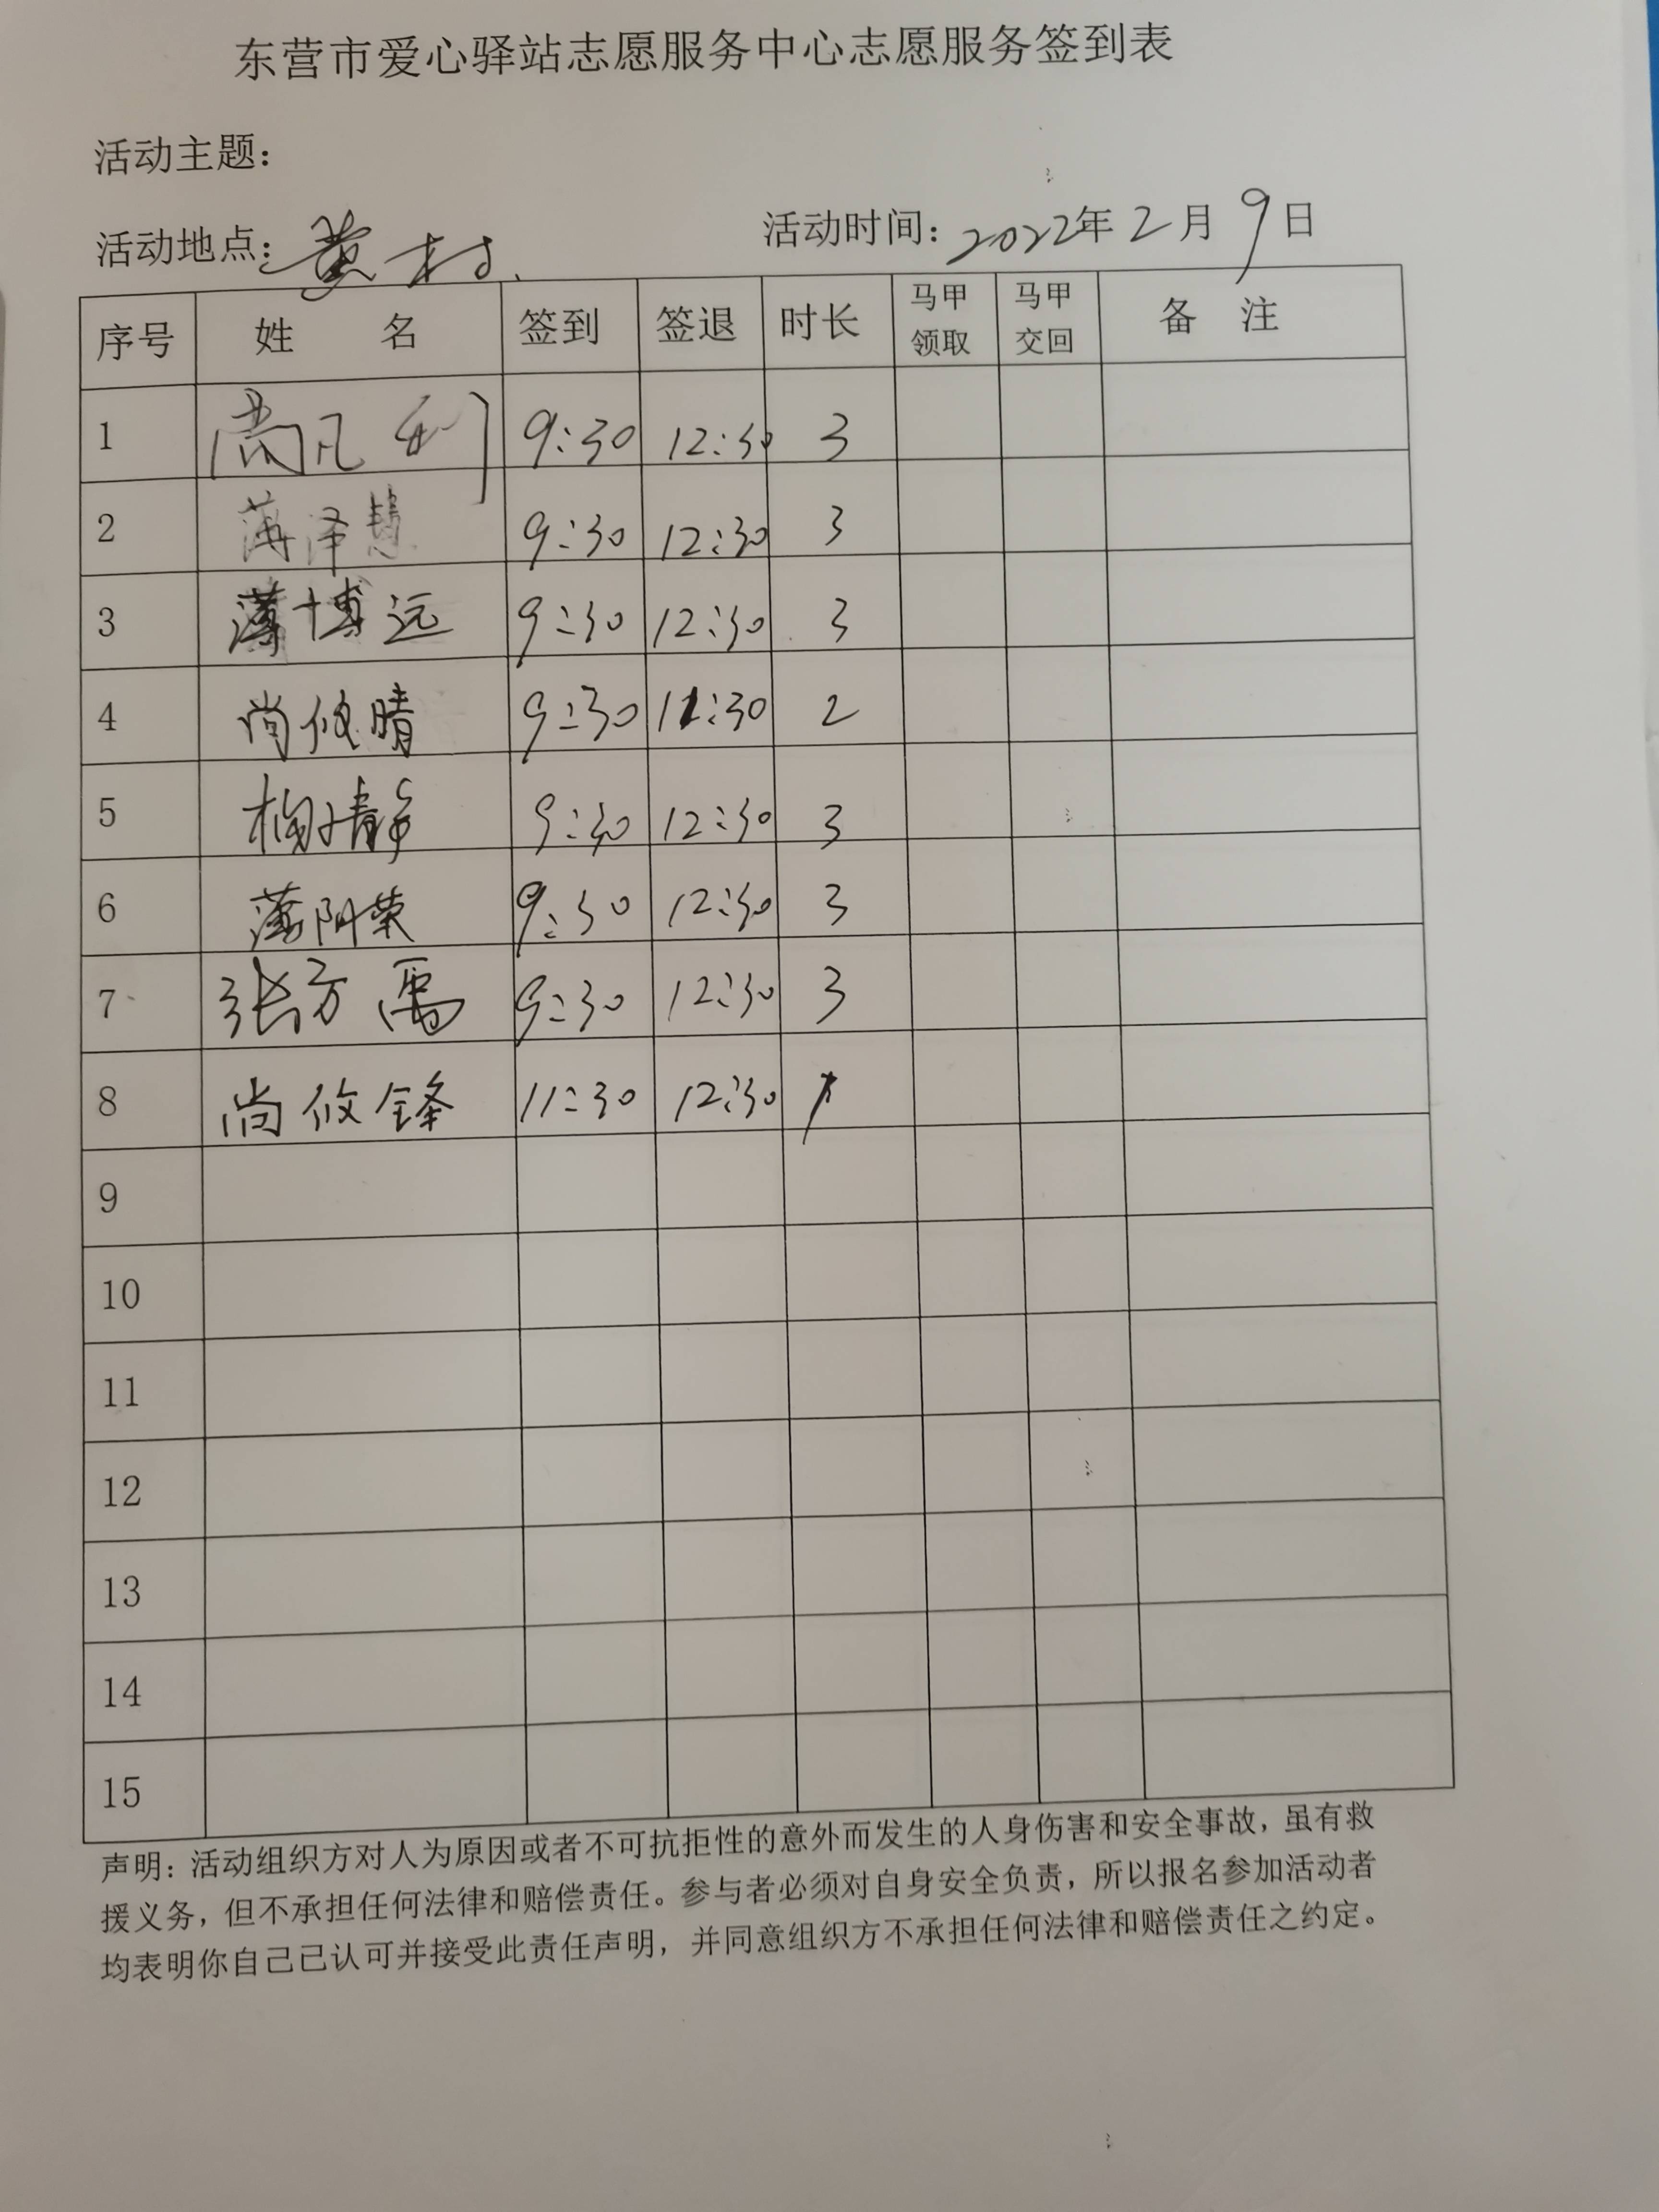 东营市爱心驿站志愿服务中心志愿服务签到表
活动主题：
活动地点：黄村
活动时间：2022年2月9日
序号 姓 名 签到 签退 时长 马甲领取 马甲交回 备 注
1 尚凡利 9:30 12:30 3
2 薄泽慧 9:30 12:30 3
3 薄博远 9:30 12:30 3
4 尚攸晴 9:30 11:30 2
5 静 9:30 12:30 3
6 薄阳荣 9:30 12:30 3
7 张方禹 9:30 12:30 3
8 尚攸锋 11:30 12:30 1
9
10
11
12
13
14
15
声明：活动组织方对人为原因或者不可抗拒性的意外而发生的人身伤害和安全事故，虽有救
援义务，但不承担任何法律和赔偿责任。参与者必须对自身安全负责，所以报名参加活动者
均表明你自己已认可并接受此责任声明，并同意组织方不承担任何法律和赔偿责任之约定。